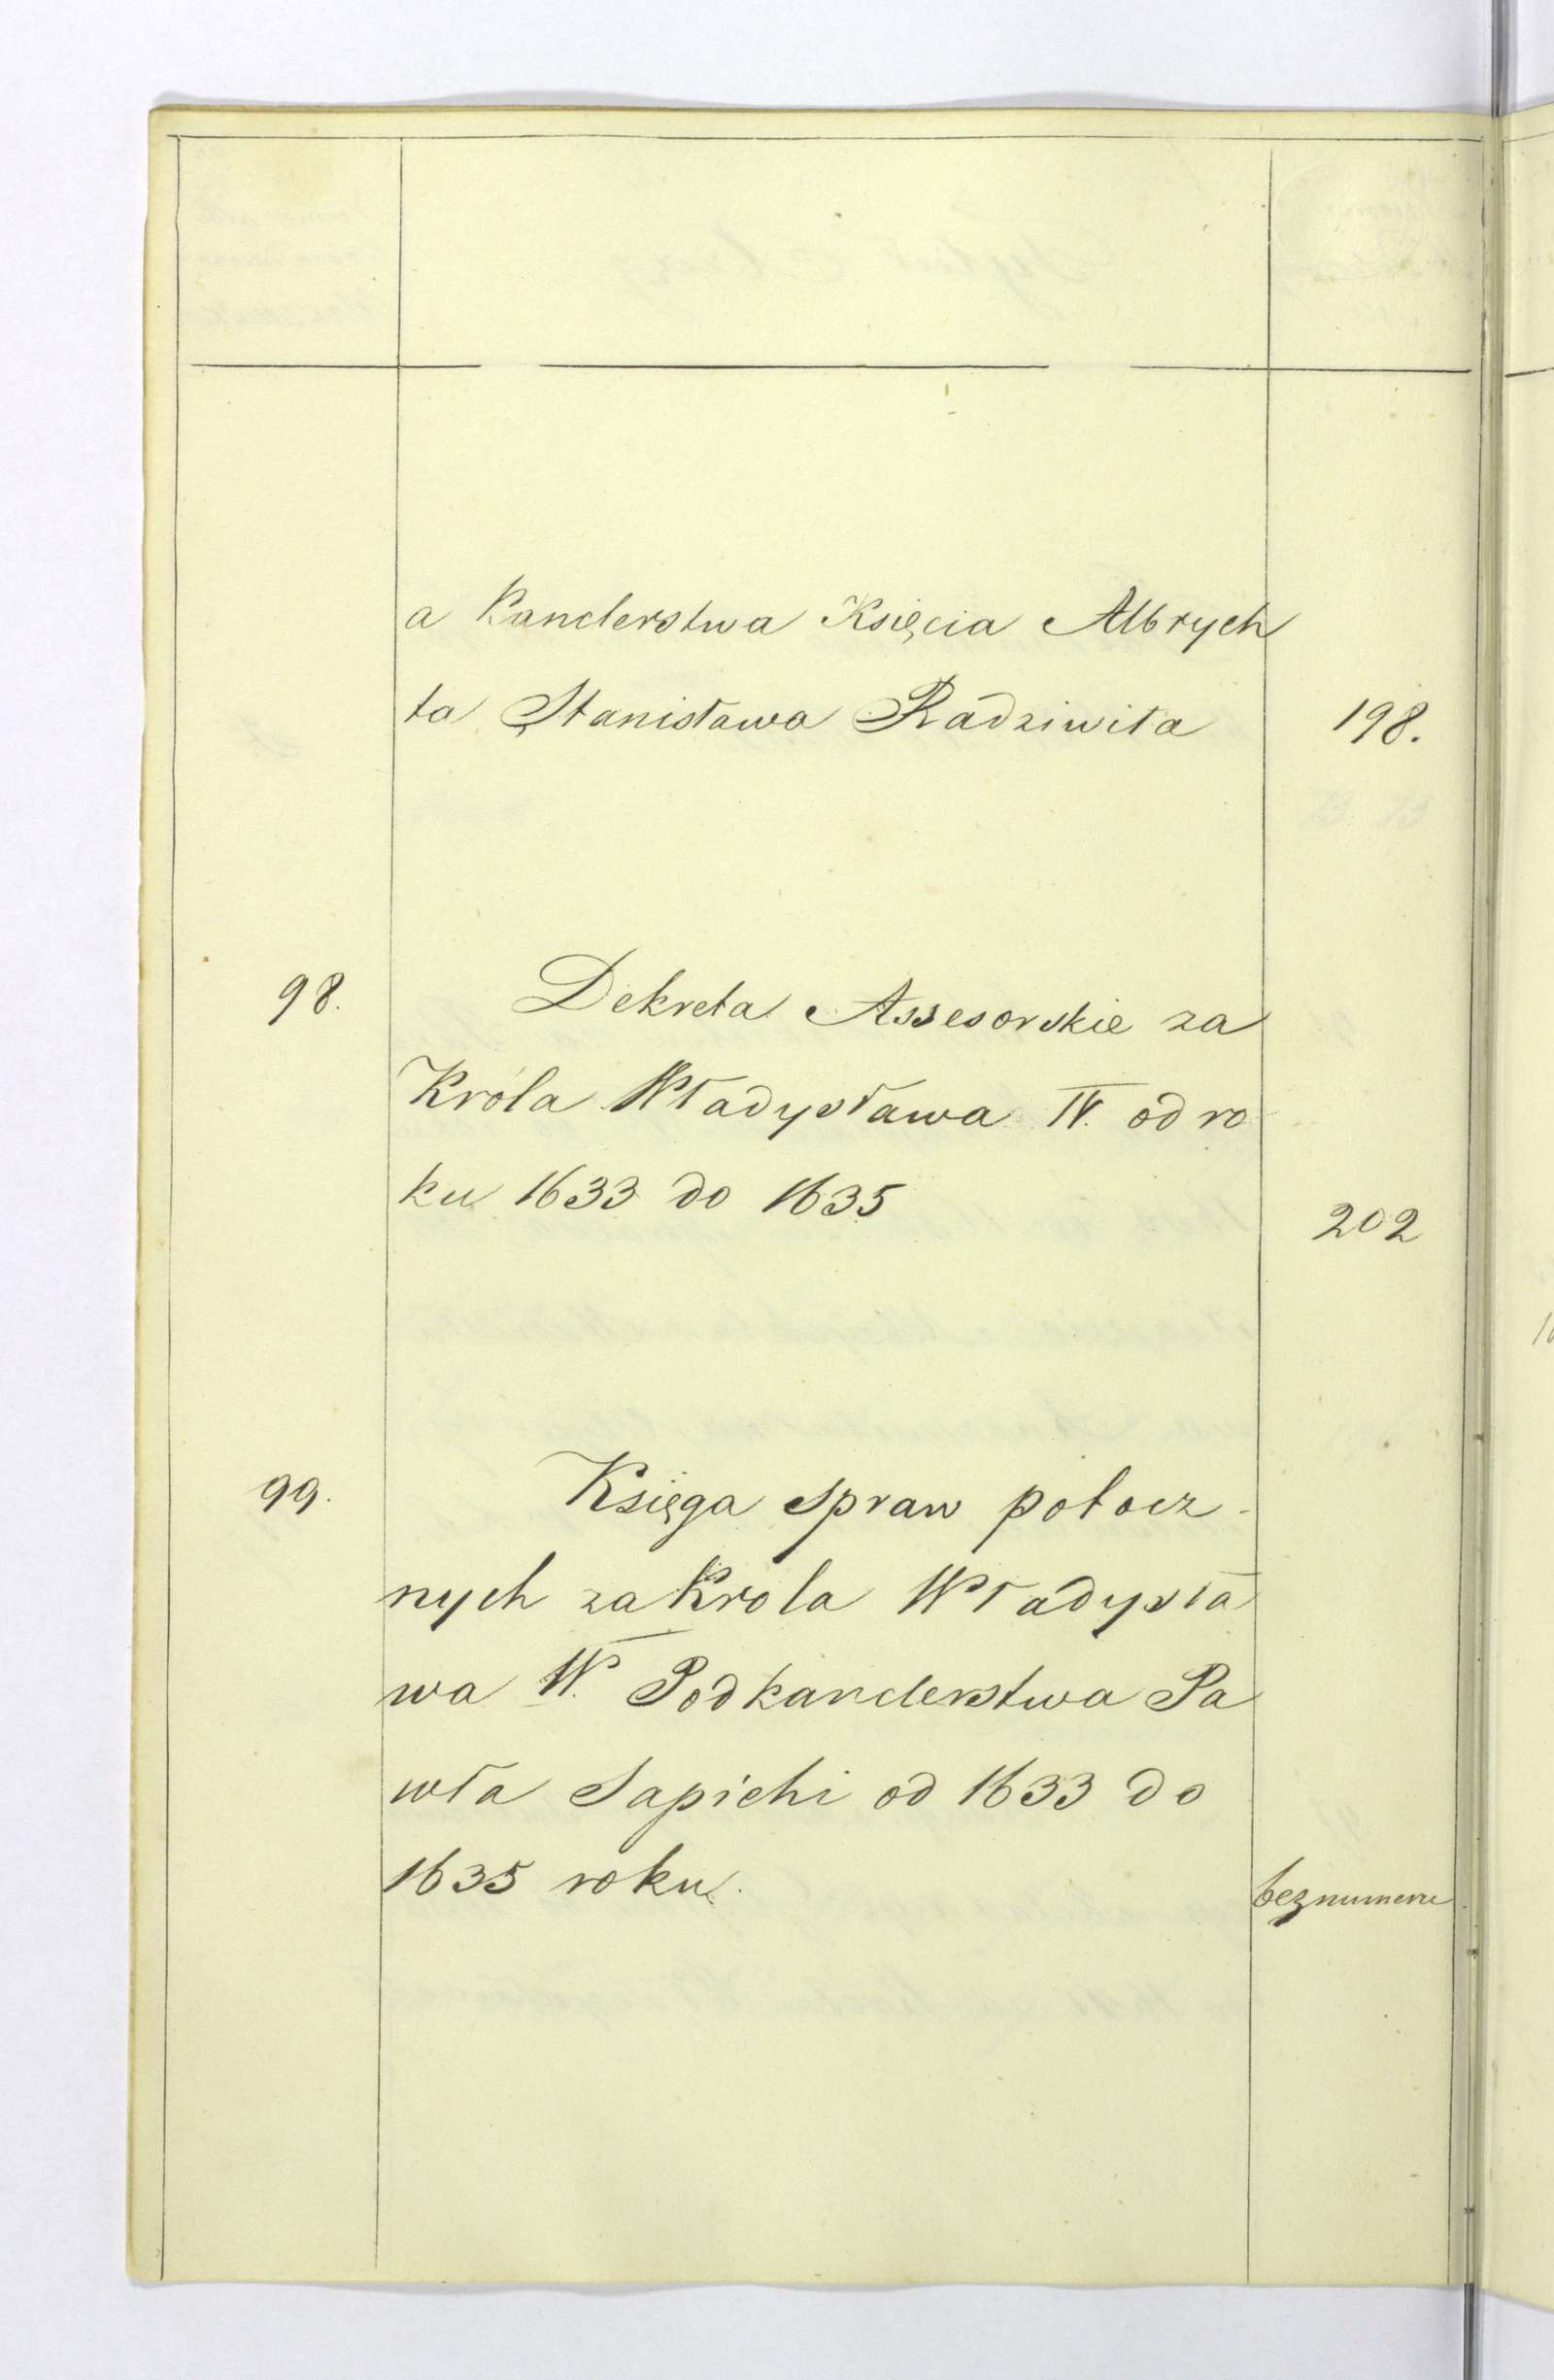 a Kanclerstwa Księcia Albrych
ta Stanisława Radziwiła 198.
98. Dekreta Assesorskie za
Króla Władysława IV. od ro
ku 1633 do 1635
202
99. Księga spraw potocz-
nych za Krola Władysła
wa IV. Podkanclerstwa Pa
wła Sapiehi od 1633 do
1635 roku.
bez numeru